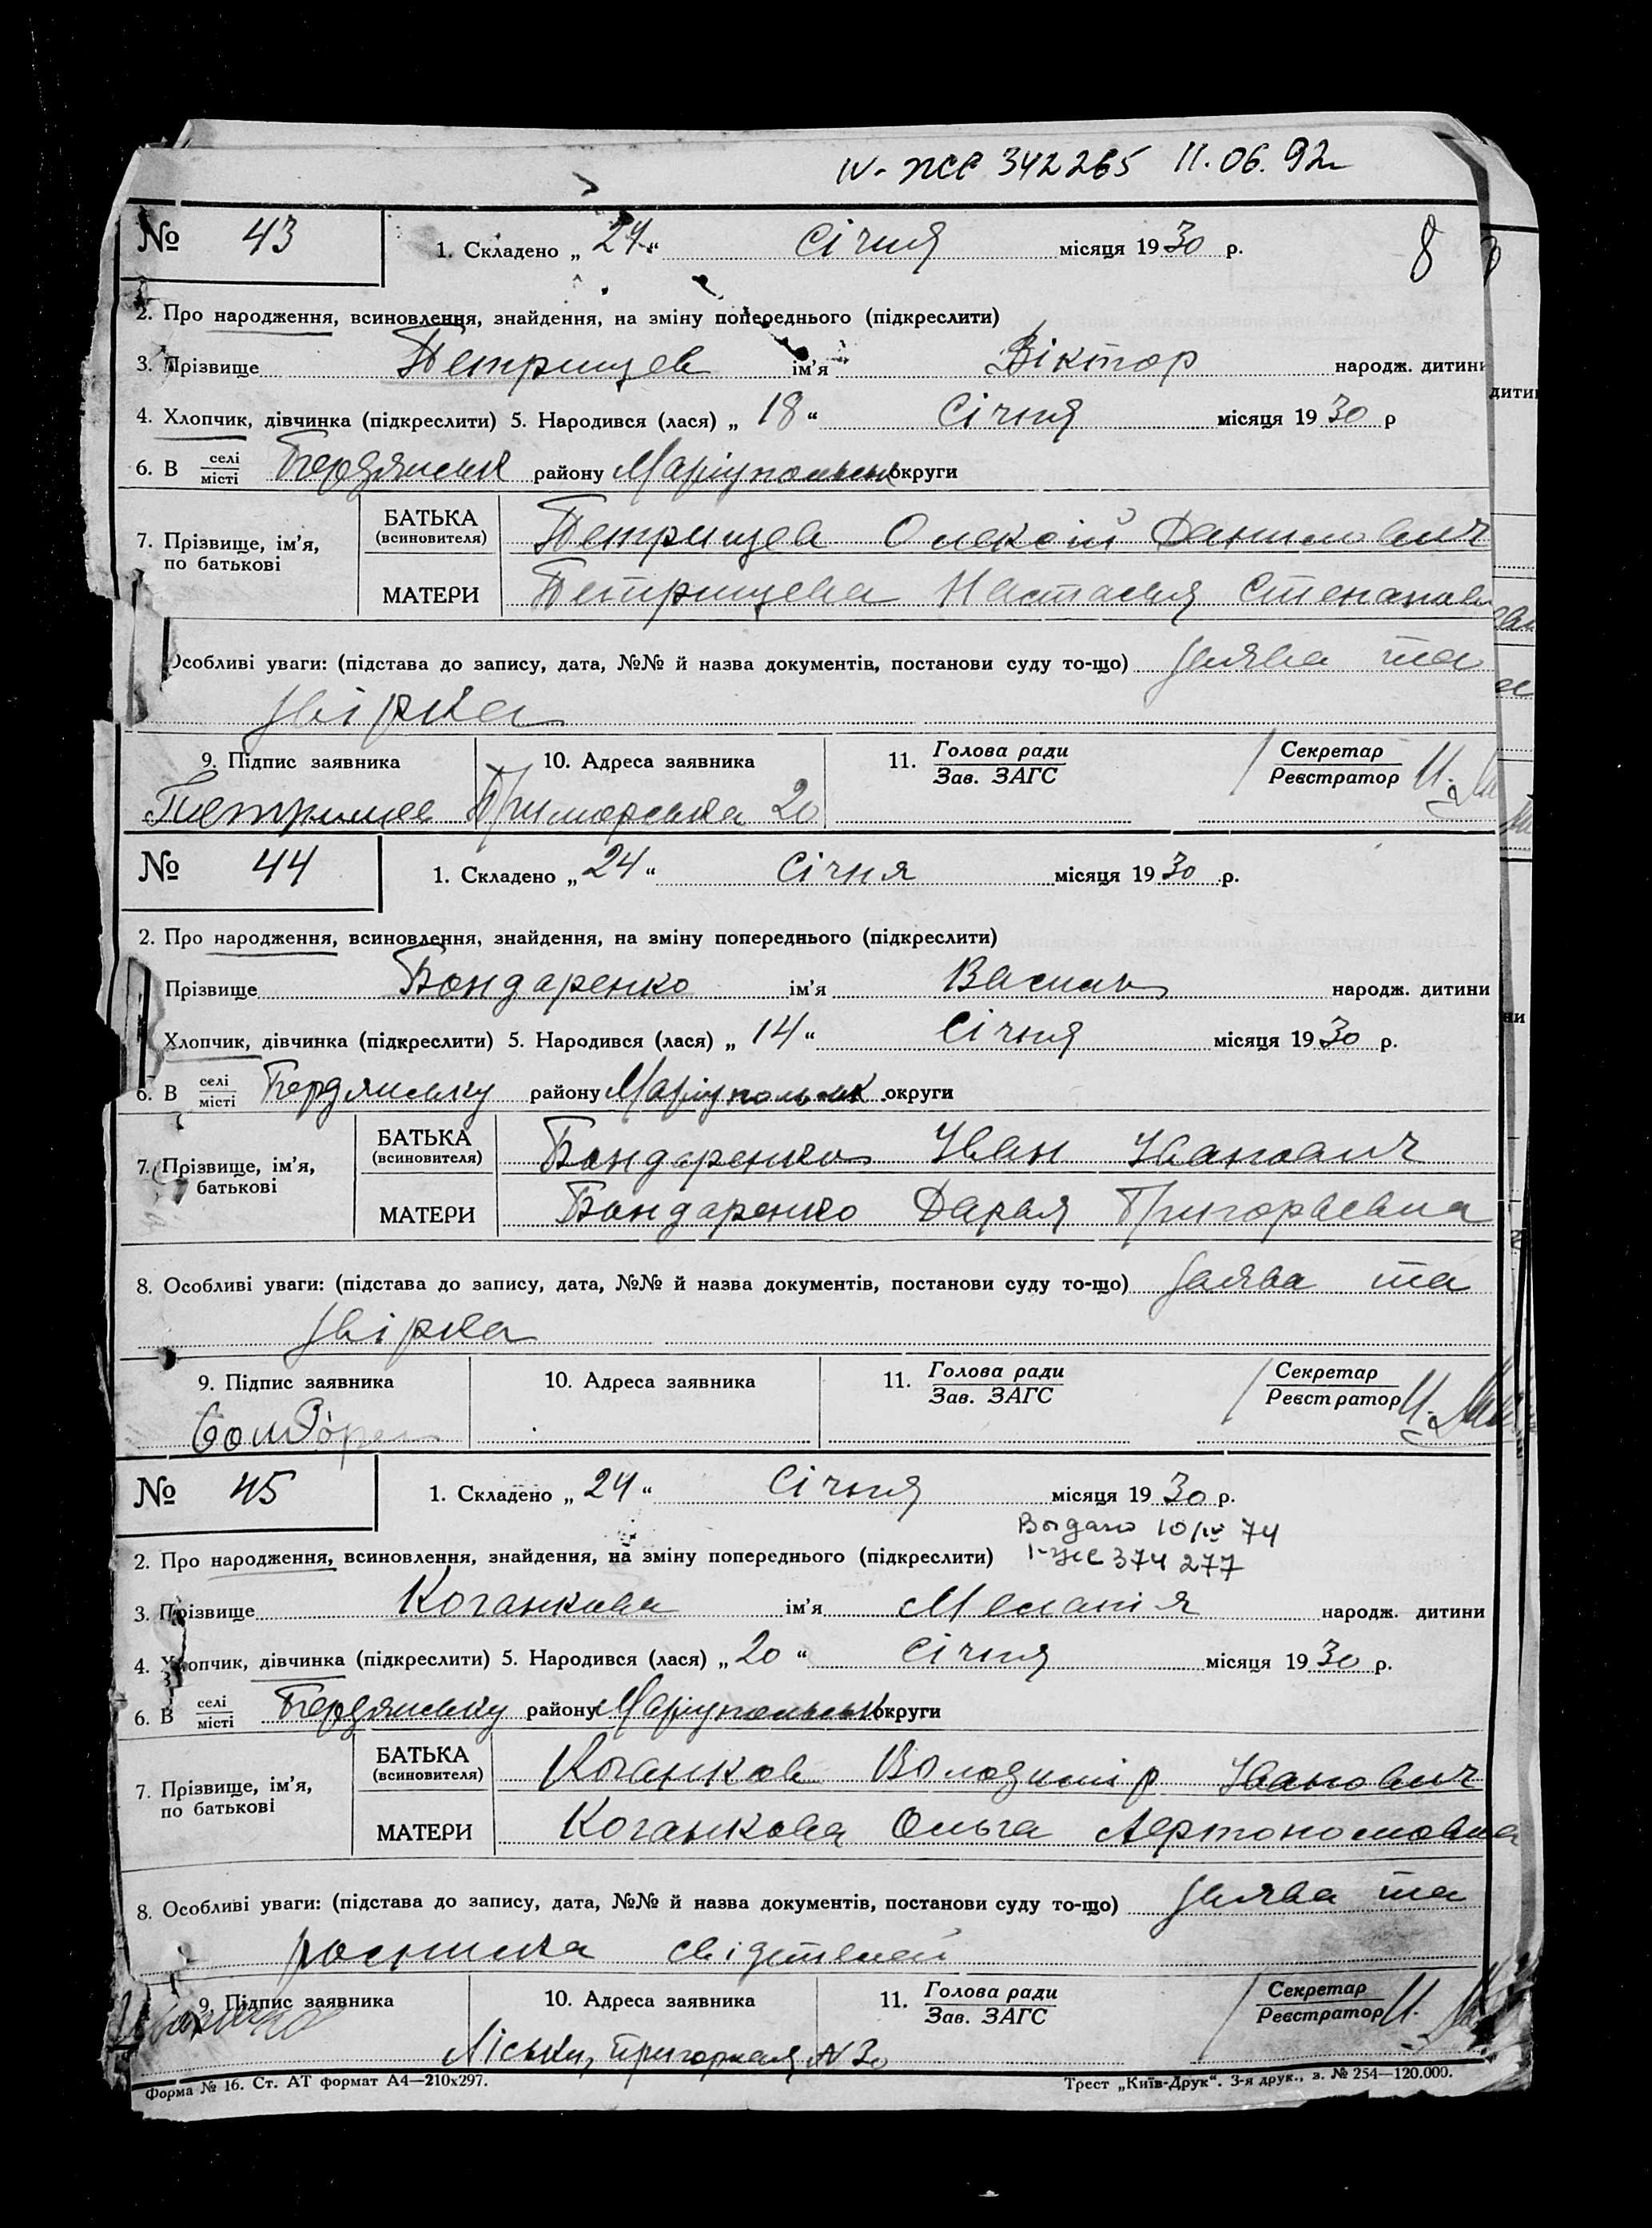 IV-ЖС 342265 11.06.92
№ 43 1. Складено „24“ Січня місяця 1930 р. 8
2. Про народження, всиновлення, знайдення, на зміну попереднього (підкреслити)
3. Прізвище Петрищев ім’я Віктор народж. дитини
4. Хлопчик, дівчинка (підкреслити) 5. Народився (лася) „18“ Січня місяця 1930 р
6. В селі місті Бердянськ району Маріупольськ округи
7. Прізвище, ім’я, по батькові
БАТЬКА (всиновителя) Петрищев Олексій Данилович
МАТЕРИ Петрищева Настасья Степанов
Особливі уваги: (підстава до запису, дата, №№ й назва документів, постанови суду то-що) Заява та
звірка
9. Підпис заявника 10. Адреса заявника 11. Голова ради Зав. ЗАГС Секретар Реєстратор
Петрищев Приморська 20
№ 44 1. Складено „24“ Січня місяця 1930 р.
2. Про народження, всиновлення, знайдення, на зміну попереднього (підкреслити)
Прізвище Бондаренко ім’я Василь народж. дитини
Хлопчик, дівчинка (підкреслити) 5. Народився (лася) „14“ Січня місяця 1930 р.
6. В селі місті Бердянську району Маріупольськ округи
7. Прізвище, ім’я, батькові
БАТЬКА (всиновителя) Бондаренко Иван Иванович
МАТЕРИ Бондаренко Дарья Григорьевна
8. Особливі уваги: (підстава до запису, дата, №№ й назва документів, постанови суду то-що) Заява та
звірка
9. Підпис заявника 10. Адреса заявника 11. Голова ради Зав. ЗАГС Секретар Реєстратор
№ 45 1. Складено „24“ Січня місяця 1930 р.
Выдано 10/IV 74
2. Про народження, всиновлення, знайдення, на зміну попереднього (підкреслити) I-ЖС 374277
3. Прізвище Коганкова ім’я Меланія народж. дитини
4. Хлопчик, дівчинка (підкреслити) 5. Народився (лася) „20“ Січня місяця 1930 р.
6. В селі місті Бердянську району Маріупольськ округи
7. Прізвище, ім’я, по батькові
БАТЬКА (всиновителя) Коганков Володимір Иванович
МАТЕРИ Коганкова Ольга Автономовна
8. Особливі уваги: (підстава до запису, дата, №№ й назва документів, постанови суду то-що) Заява та
росписка свідетелей
9. Підпис заявника 10. Адреса заявника 11. Голова ради Зав. ЗАГС Секретар Реєстратор
Ліськи, Пригорная N 30
Форма № 16. Ст. АТ формат А4—210х297. Трест „Київ-Друк“. 3-я друк., з. № 254—120.000.